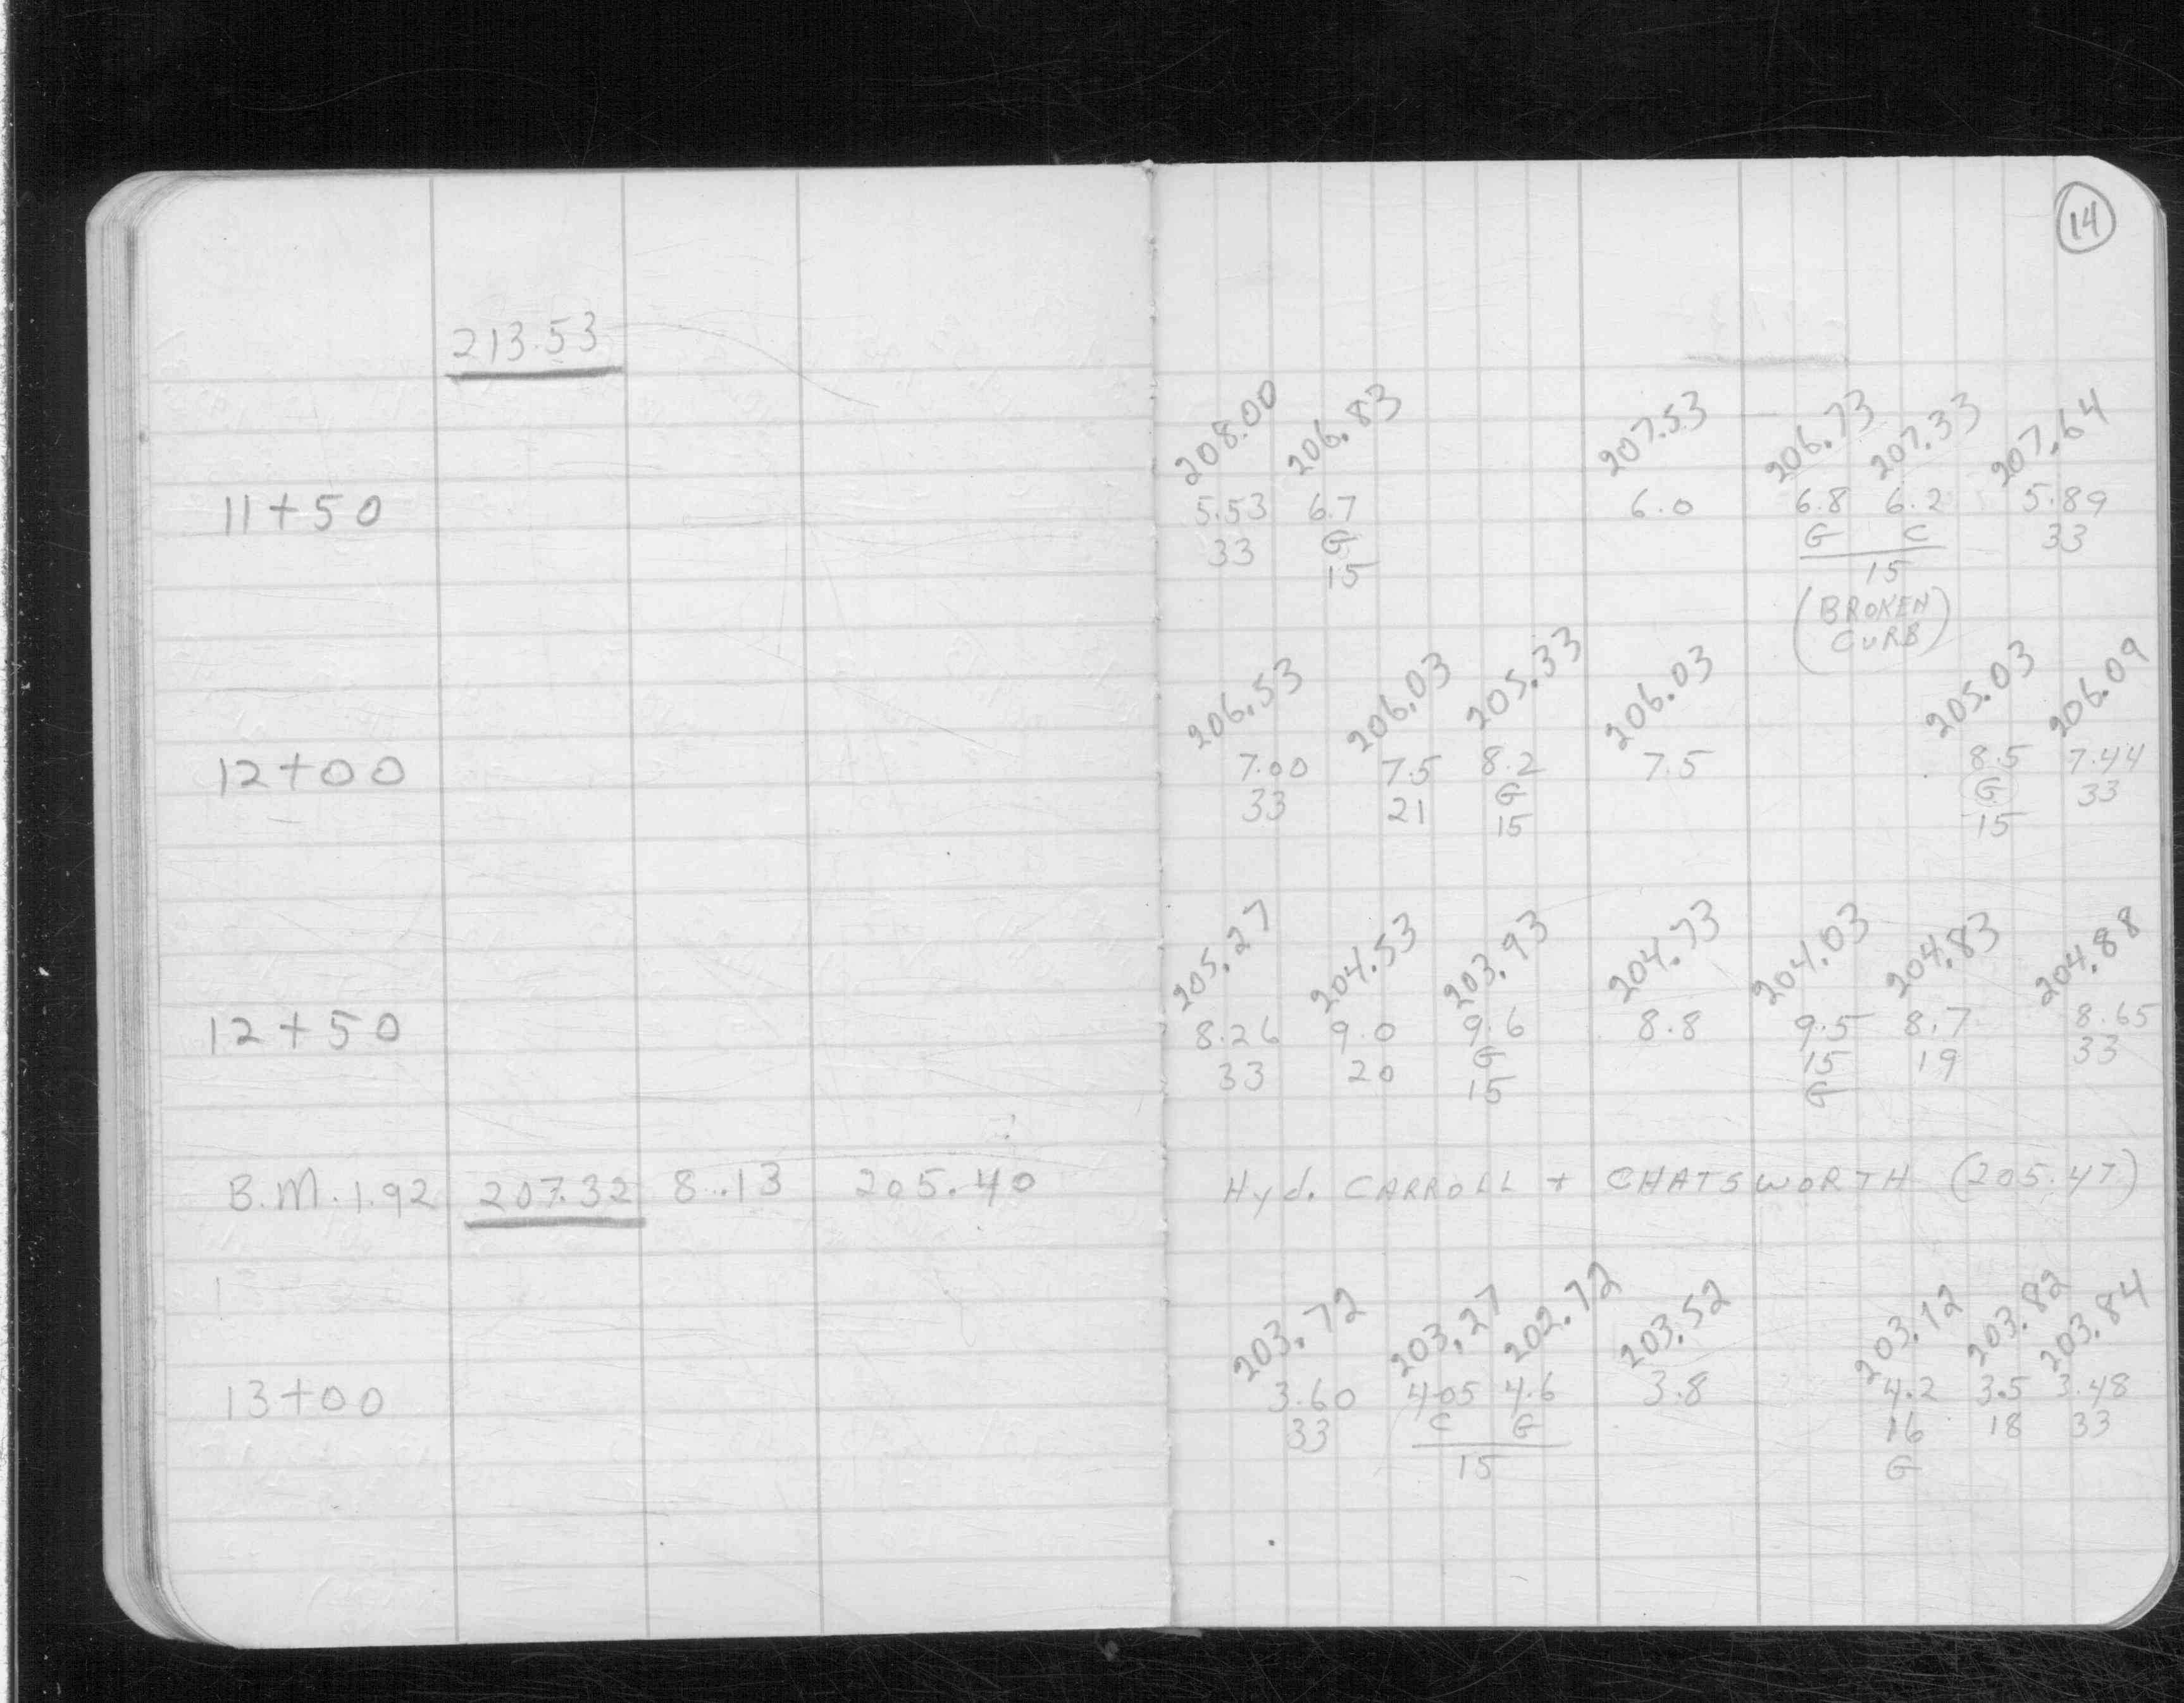 14
213.53
208.00 206.83 207.53 206.73 207.33 207.64
11+50 5.53 6.7 6.0 6.8 6.2 5.89
33 G G C 33
15 15
(BROKEN
CURB)
206.53 206.03 205.33 206.03 205.03 206.09
12+00 7.00 7.5 8.2 7.5 8.5 7.44
33 21 G G 33
15 15
205.27 204.53 203.93 204.73 204.03 204.83 204.88
12+50 8.26 9.0 9.6 8.8 9.5 8.7 8.65
33 20 G 15 19 33
15 G
B.M. 1.92 207.32 8.13 205.40 Hyd. CARROLL + CHATSWORTH (205.47)
203.72 203.27 202.72 203.52 203.12 203.82 203.84
13+00 3.60 4.05 4.6 3.8 4.2 3.5 3.48
33 C G 16 18 33
15 G